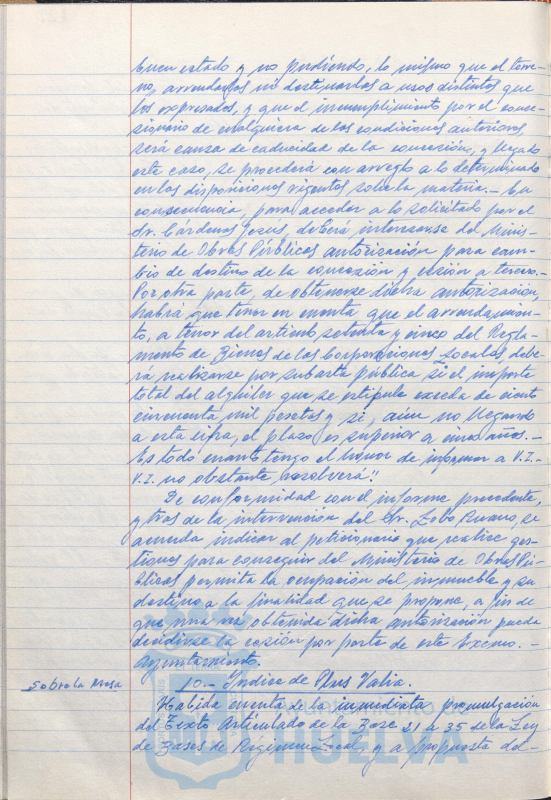 buen estado y no pudiendo, lo mismo que el terre-
no, arrendarlos ni destinarlos a usos distintos que
los expresados, y que el incumplimiento por el conce-
sionario de cualquiera de las condiciones anteriores,
será causa de caducidad de la concesión, y llegado
este caso, se procederá con arreglo a lo determinado
en las disposiciones vigentes sobre la materia.- En
consecuencia, para acceder a lo solicitado por el
Sr. Cárdenas Jesus, deberá interesarse del Minis-
terio de Obras Públicas autorización para cam-
bio de destino de la concesión y cesión a tercero.-
Por otra parte, de obtenerse dicha autorización,
habrá que tener en cuenta que el arrendamien-
to, a tenor del artículo setenta y cinco del Regla-
mento de Bienes de las Corporaciones Locales, debe-
rá realizarse por subasta pública si el importe
total del alquiler que se estipule exceda de ciento
cincuenta mil pesetas y si, aún no llegando
a esta cifra, el plazo es superior a cinco años.-
Es todo cuanto tengo el honor de informar a V.I.-
V.I. no obstante, resolverá".
De conformidad con el informe precedente,
y tras de la intervención del Sr. Lobo Ruano, se
acuerda indicar al peticionario que realice ges-
tiones para conseguir del Ministerio de Obras Pú-
blicas permita la ocupación del inmueble y su
destino a la finalidad que se propone, a fin de
que una vez obtenida dicha autorización pueda
decidirse la cesión por parte de este Excmo.-
Ayuntamiento.
Sobre la Mesa
10.- Indice de Plus Valia.
Habida cuenta de la inmediata promulgación
del Texto Articulado de la Base 21 a 35 de la Ley
de Bases de Regimen Local, y a propuesta del-
HUELVA